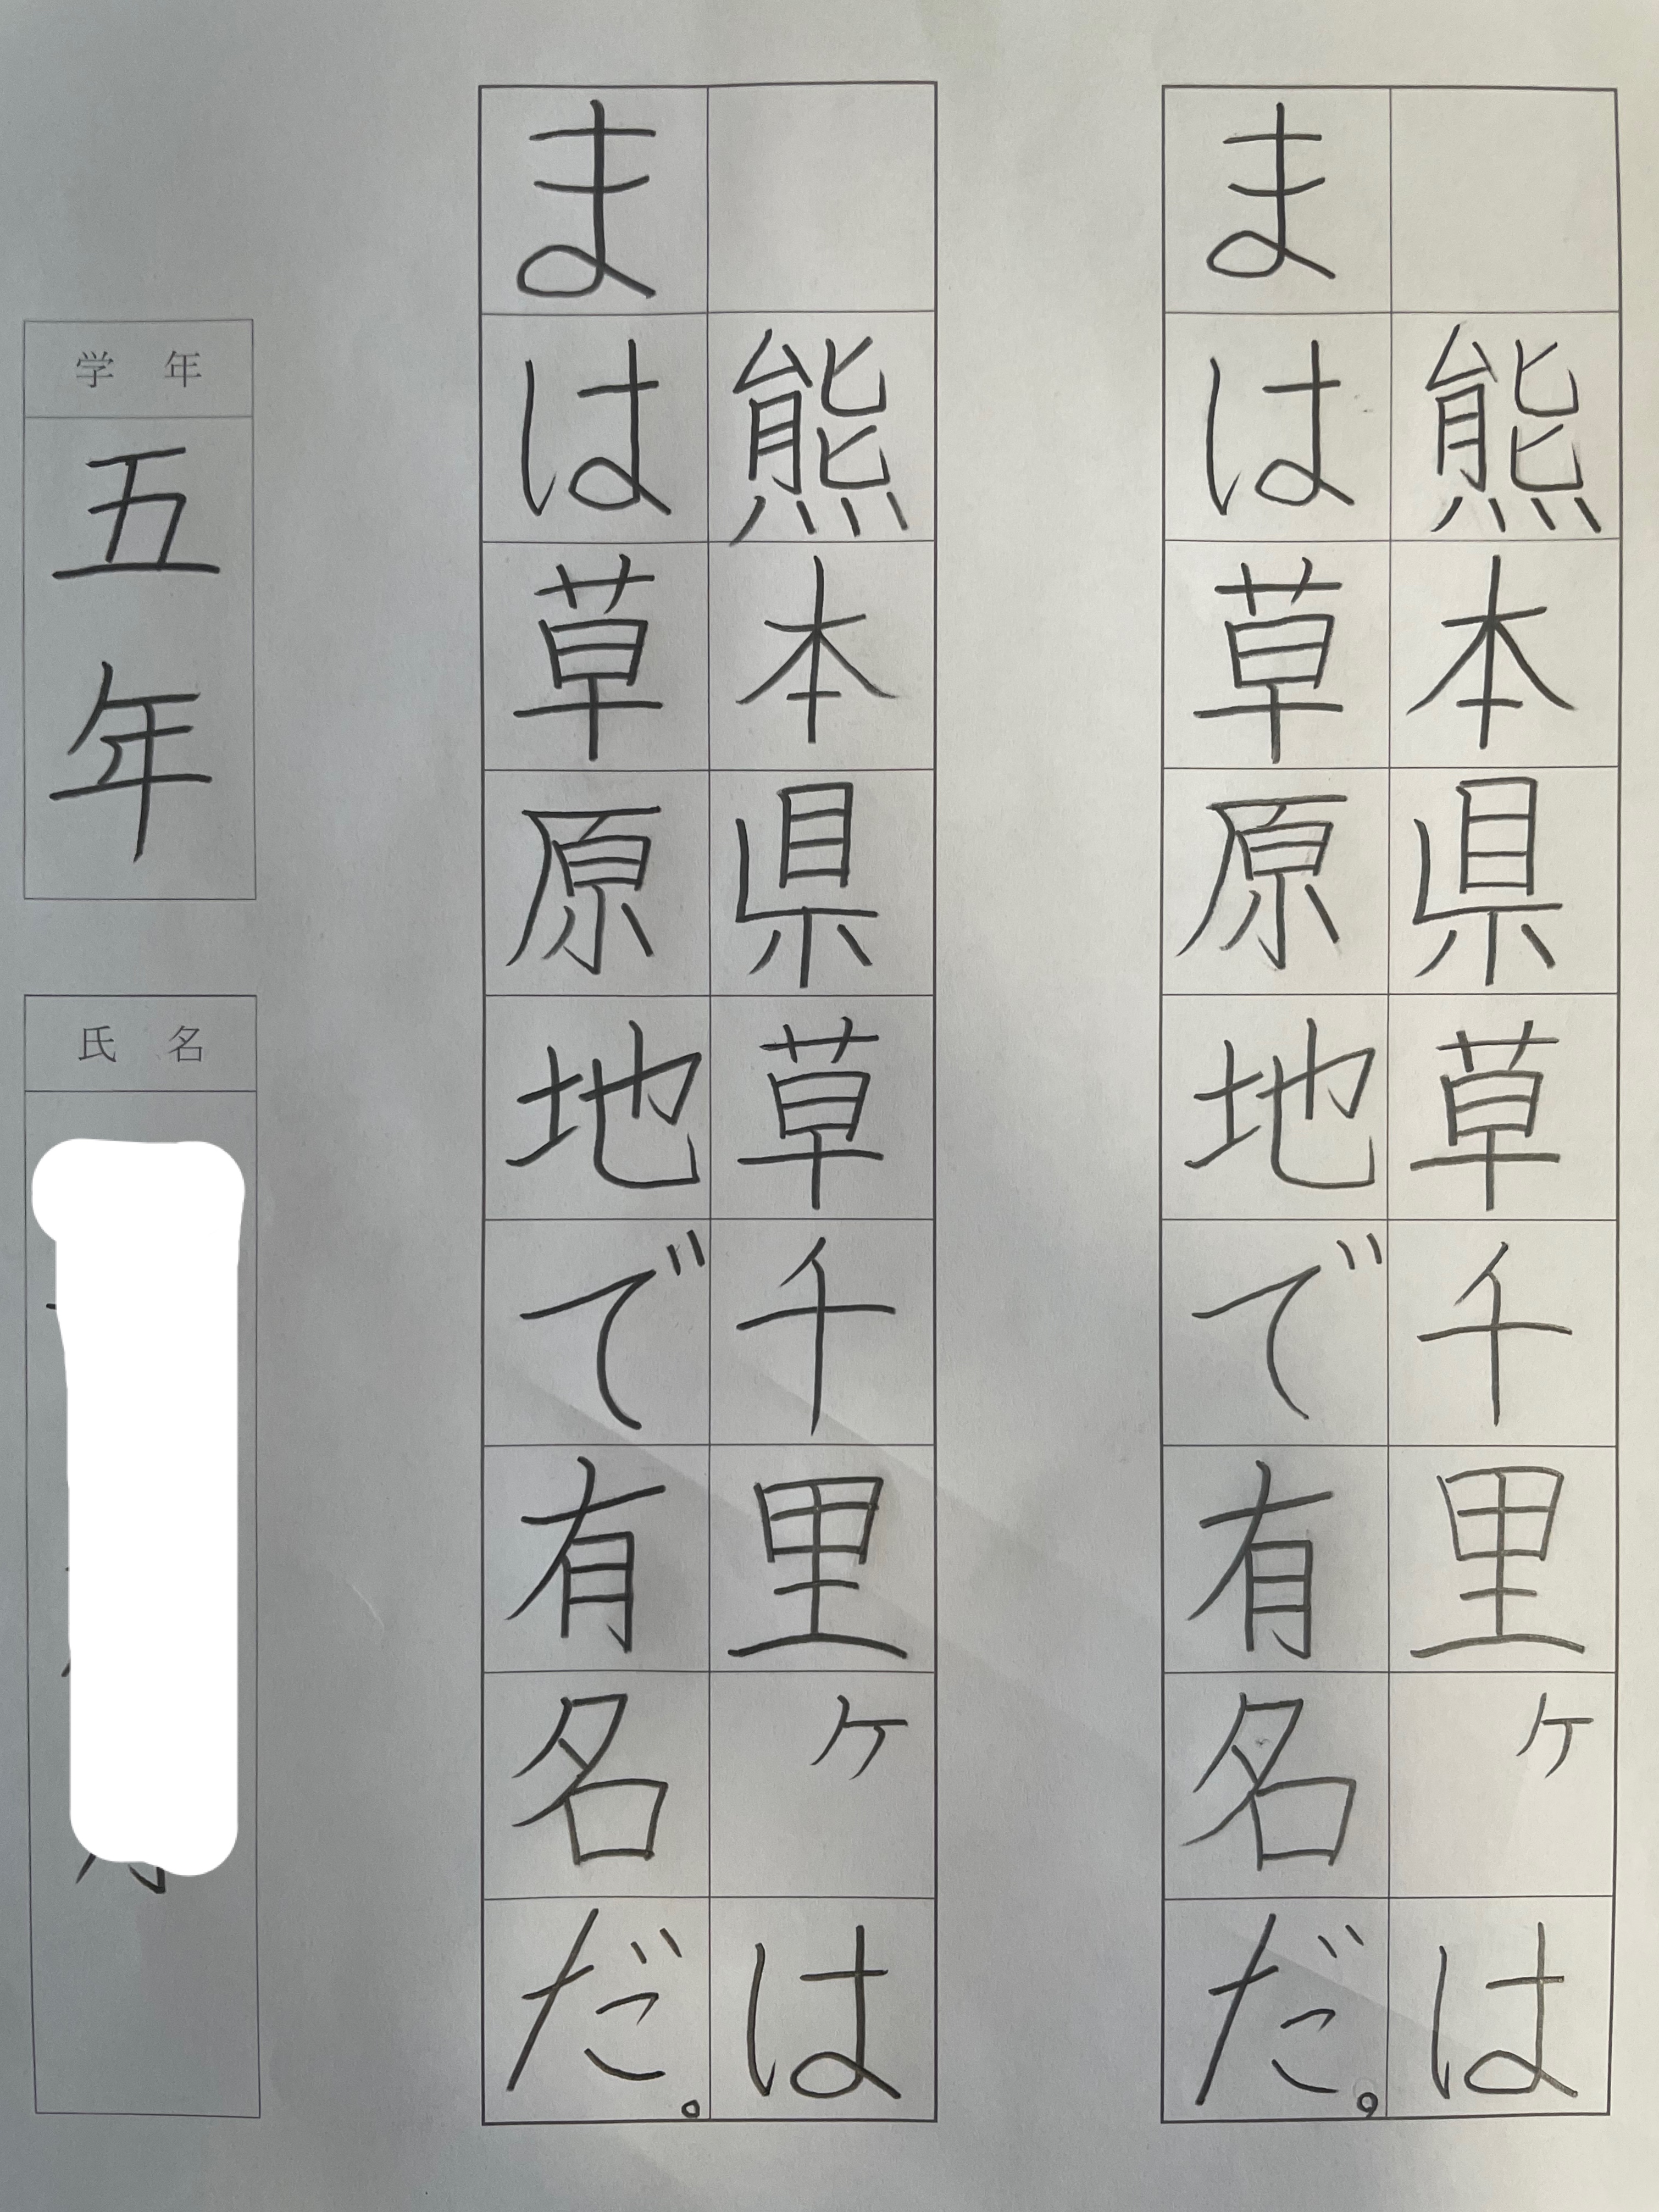 熊本県草千里ヶは
まは草原地で有名だ。
熊本県草千里ヶは
まは草原地で有名だ。
学年
五年
氏名